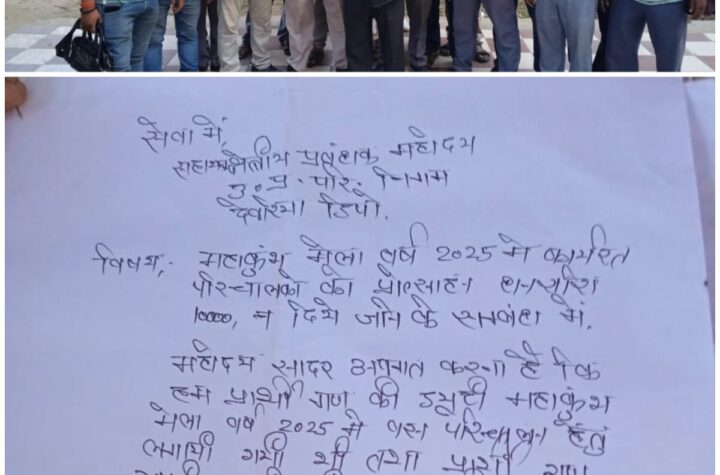 सेवा में,
सहायक क्षेत्रीय प्रबंधक महोदय
उ. प्र. परि. निगम
देवरिया डिपो.
विषय:- महाकुंभ मेला वर्ष 2025 में कार्यरत
परिचालको का प्रोत्साहन धनराशि
10000, न दिये जाने के सम्बंध में.
महोदय सादर अवगत कराना है कि
हम प्रार्थी गण की ड्यूटी महाकुंभ
मेला वर्ष 2025 में बस परिचालन हेतु
लगायी गयी थी तथा प्रार्थी गण